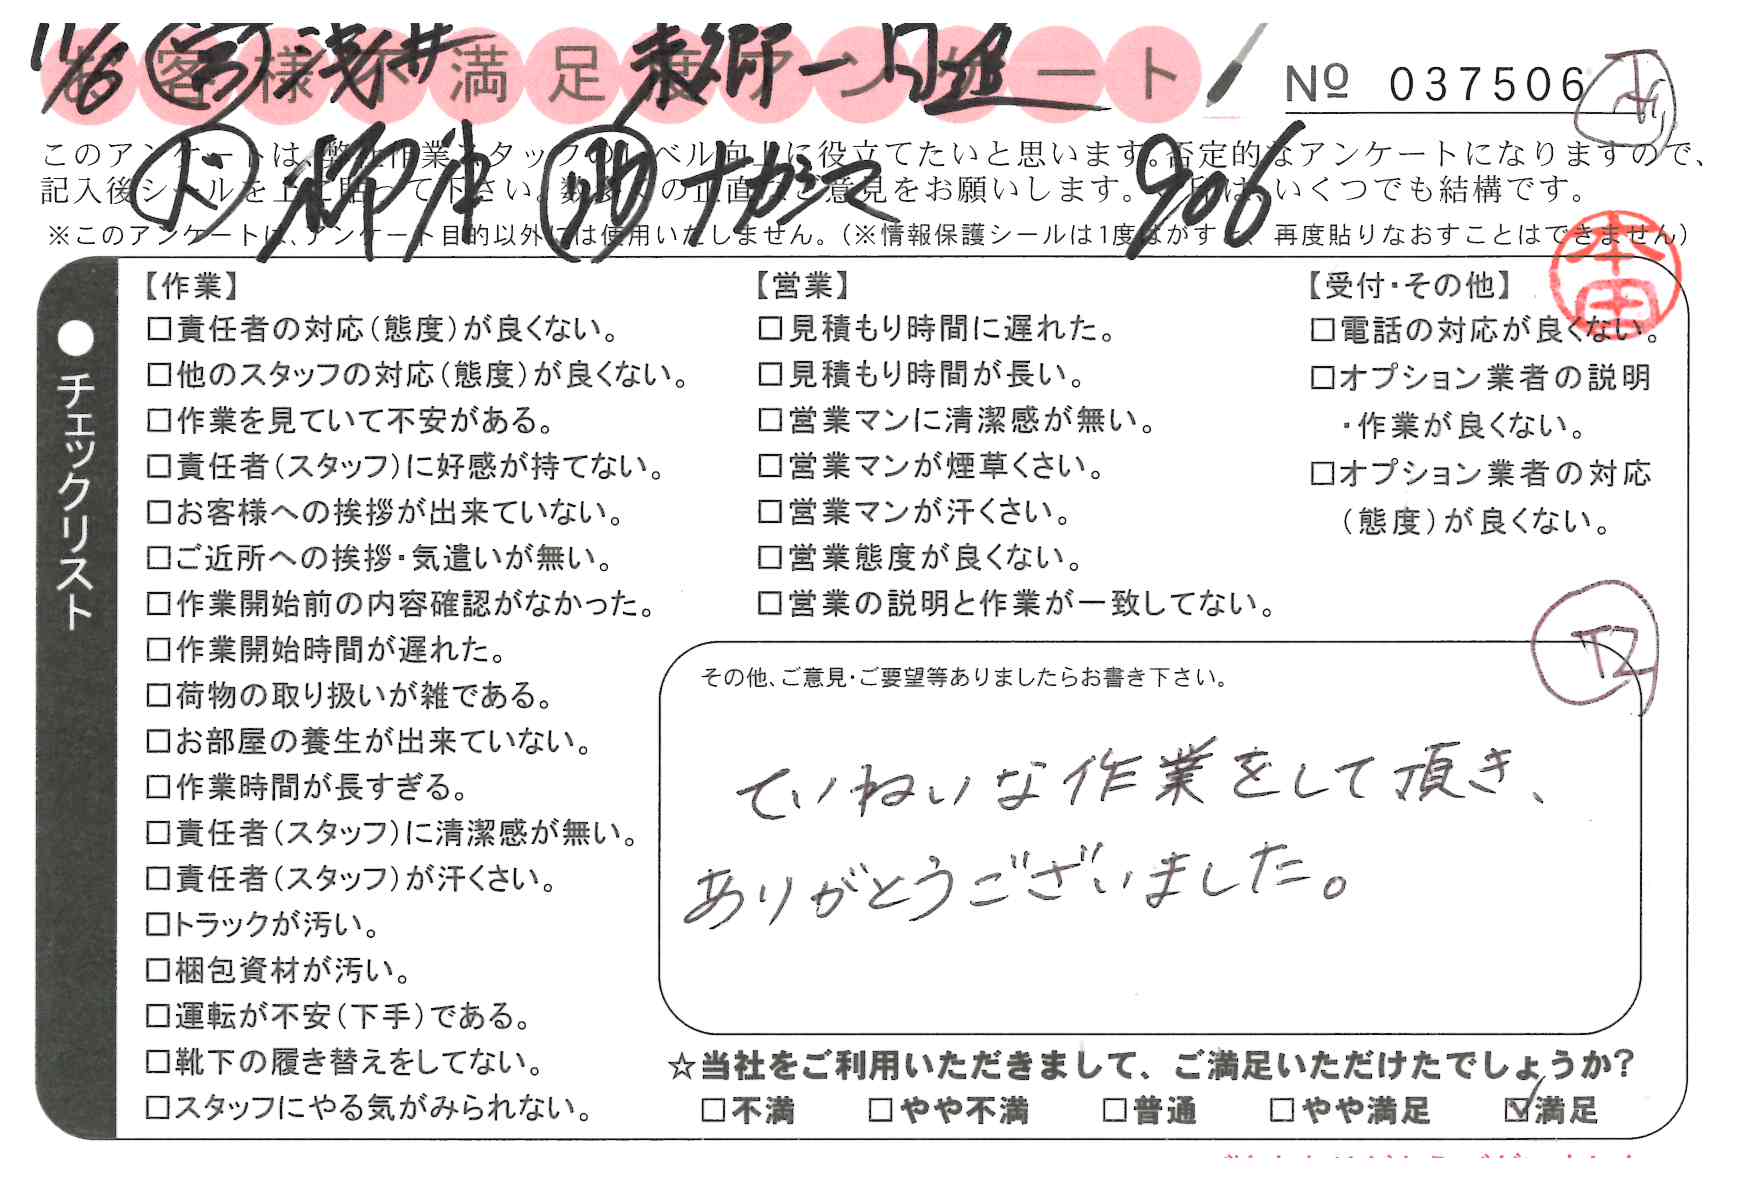 お客様不満足度アンケート
11/6 営 浅井 東郷→日進
№ 037506
このアンケートは、弊社作業スタッフのレベル向上に役立てたいと思います。否定的なアンケートになりますので、
記入後シールを上に貼って下さい。数多くの正直なご意見をお願いします。 いくつでも結構です。
柳津 助 ナガシマ 906
※このアンケートは、アンケート目的以外には使用いたしません。(※情報保護シールは1度はがすと、再度貼りなおすことはできません)
本田
●チェックリスト
【作業】
□責任者の対応(態度)が良くない。
□他のスタッフの対応(態度)が良くない。
□作業を見ていて不安がある。
□責任者(スタッフ)に好感が持てない。
□お客様への挨拶が出来ていない。
□ご近所への挨拶・気遣いが無い。
□作業開始前の内容確認がなかった。
□作業開始時間が遅れた。
□荷物の取り扱いが雑である。
□お部屋の養生が出来ていない。
□作業時間が長すぎる。
□責任者(スタッフ)に清潔感が無い。
□責任者(スタッフ)が汗くさい。
□トラックが汚い。
□梱包資材が汚い。
□運転が不安(下手)である。
□靴下の履き替えをしてない。
□スタッフにやる気がみられない。
【営業】
□見積もり時間に遅れた。
□見積もり時間が長い。
□営業マンに清潔感が無い。
□営業マンが煙草くさい。
□営業マンが汗くさい。
□営業態度が良くない。
□営業の説明と作業が一致してない。
【受付・その他】
□電話の対応が良くない。
□オプション業者の説明
・作業が良くない。
□オプション業者の対応
(態度)が良くない。
その他、ご意見・ご要望等ありましたらお書き下さい。
ていねいな作業をして頂き、
ありがとうございました。
☆当社をご利用いただきまして、ご満足いただけたでしょうか?
□不満 □やや不満 □普通 □やや満足 ☑満足